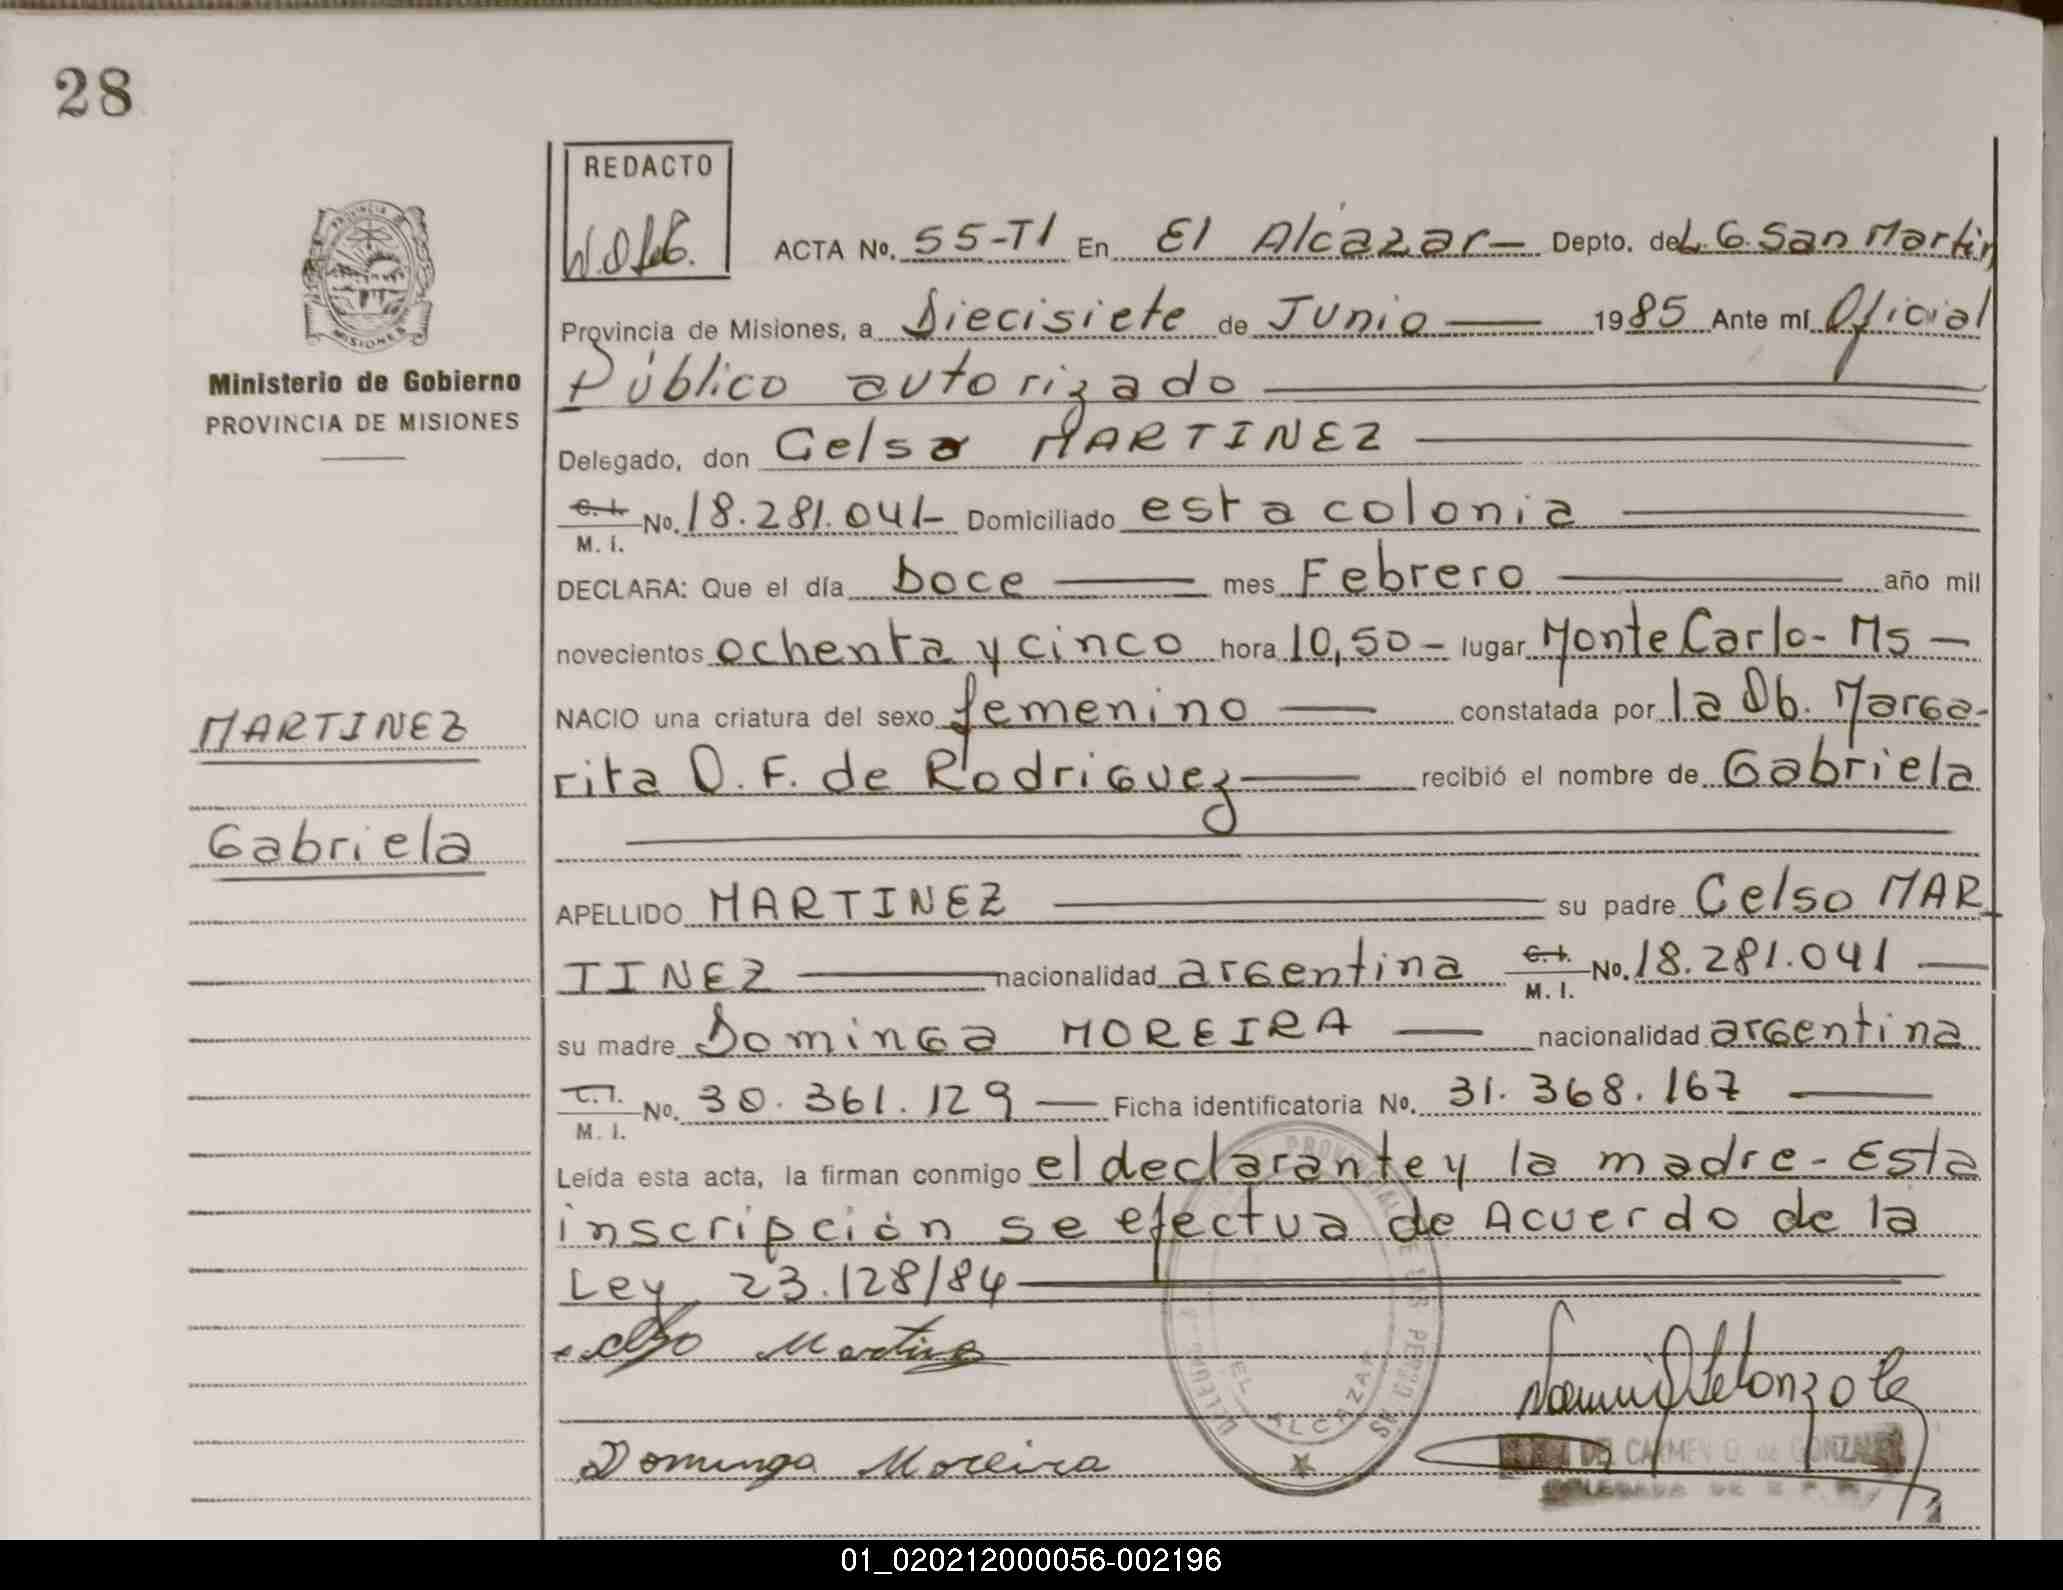 28
REDACTO
ACTA No. 55-TI En El Alcazar Depto. de L. G. San Martin
Provincia de Misiones, a Diecisiete de Junio 1985 Ante mí Oficial
Público autorizado
PROVINCIA
MISIONES
Ministerio de Gobierno
PROVINCIA DE MISIONES
Delegado, don Celso MARTINEZ
C.I.
M. I. No. 18.281.041- Domiciliado esta colonia
DECLARA: Que el día Doce mes Febrero año mil
novecientos ochenta y cinco hora 10,50- lugar MonteCarlo- Ms
MARTINEZ
Gabriela
NACIO una criatura del sexo femenino constatada por la Ob. Marga-
rita O. F. de Rodriguez recibió el nombre de Gabriela
APELLIDO MARTINEZ su padre Celso MAR
TINEZ nacionalidad argentina C.I.
M. I. No. 18.281.041
su madre Dominga MOREIRA nacionalidad argentina
C.I.
M. I. No. 30.361.129 Ficha identificatoria No. 31.368.167
Leída esta acta, la firman conmigo el declarante y la madre- Esta
inscripción se efectua de Acuerdo de la
Ley 23.128/84
Celso Martinez
Dominga Moreira
EL ALCAZAR
DEL CARMEN D. de GONZALEZ
01_020212000056-002196